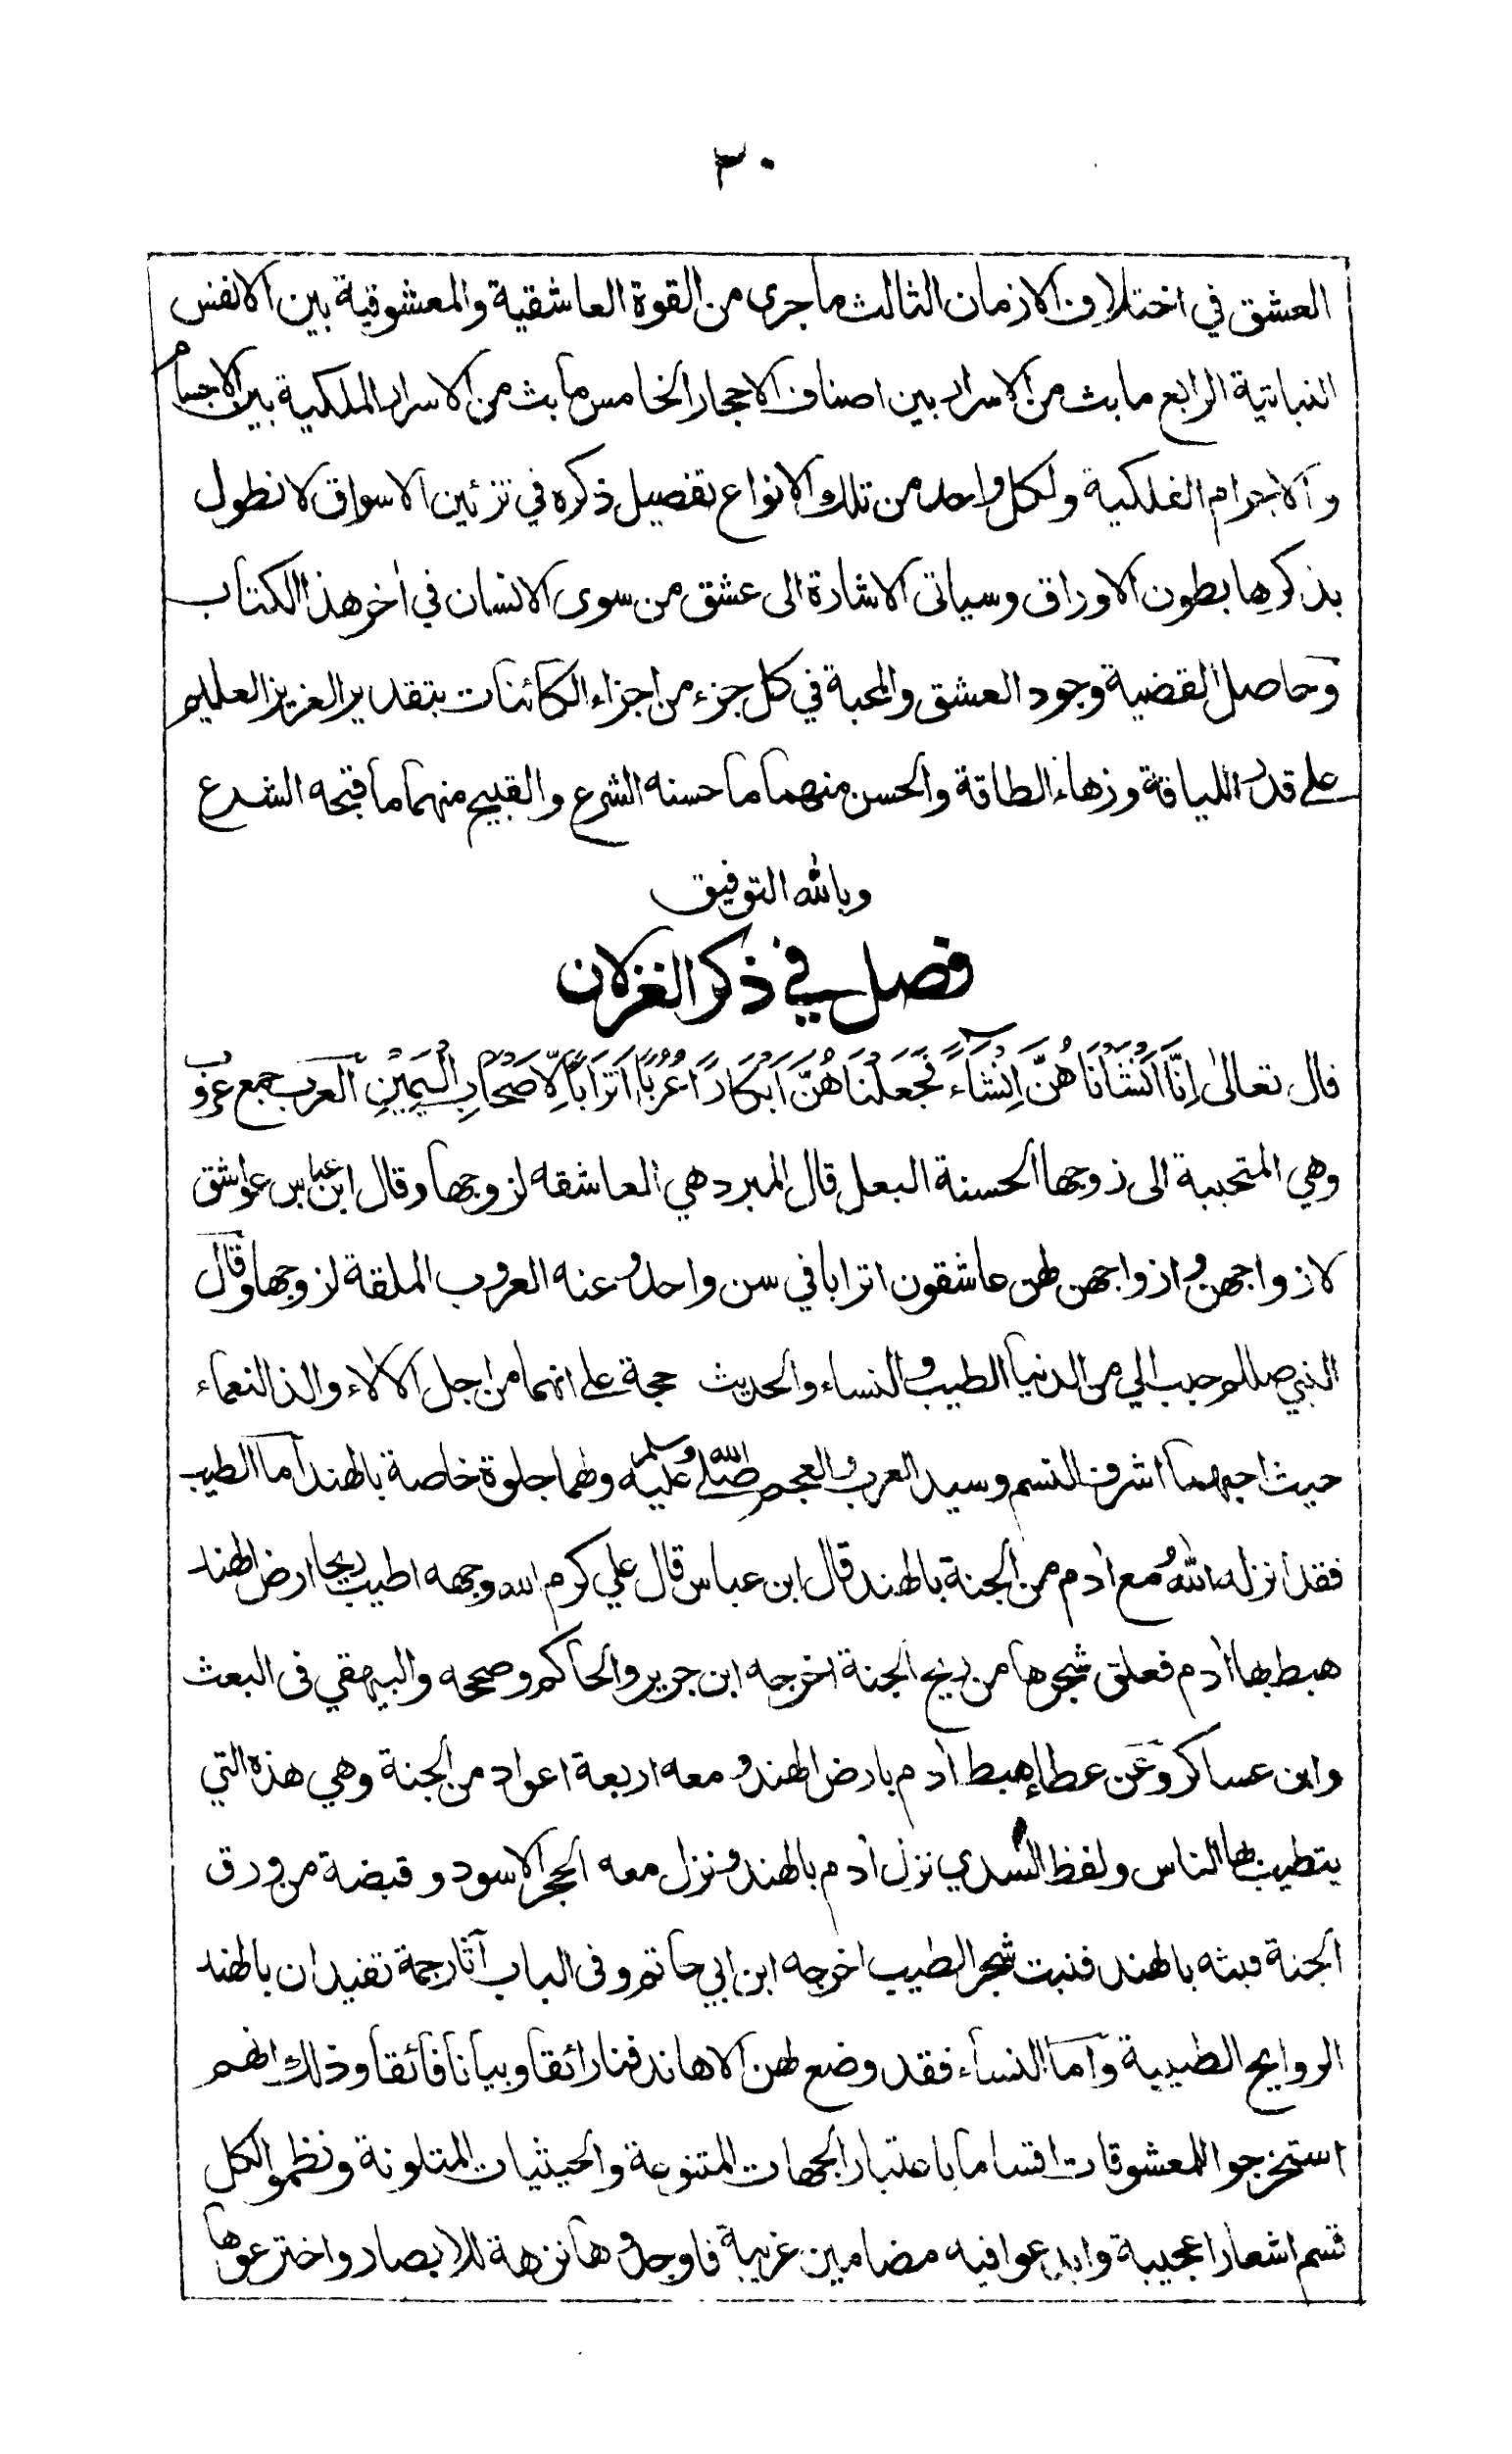 ٣٠
العشق في اختلاف الازمان الثالث ما جرى من القوة العاشقية والمعشوقية بين الانفس
النباتية الرابع ما بث من الاسرار بين اصناف الاحجار الخامس ما بث من الاسرار الملكية بين الاجسام
والاجرام الفلكية ولكل واحد من تلك الانواع تفصيل ذكره في تزئين الاسواق لا نطول
بذكرها بطون الاوراق وسياتى الاشارة الى عشق من سوى الانسان في أخر هذا الكتاب
وحاصل القضية وجود العشق والمحبة في كل جزء من اجزاء الكائنات بتقدير العزيز العليم
على قدر اللياقة وزهاء الطاقة والحسن منهما ما حسنه الشرع والقبيح منهما ما قبحه الشرع
وبالله التوفيق
فصل في ذكر الغزلان
قال تعالىٰ اِنَّا اَنْشَأْنَاهُنَّ اِنْشَآءً فَجَعَلْنَاهُنَّ اَبْكَارًا عُرُبًا اَتْرَابًا لِّاَصْحَابِ الْيَمِيْنِ العرب جمع عروب
وهي المتحببة الى زوجها الحسنة البعل قال المبرد هي العاشقه لزوجها وقال ابن عباس عواشق
لازواجهن وازواجهن لهن عاشقون اترابا في سن واحد وعنه العروب الملقة لزوجها وقال
النبي صللم حبب الي من الدنيا الطيب والنساء والحديث حجة على انهما من اجل الألاء والذ النعماء
حيث احبهما اشرف النسم وسيد العرب والعجم صلى الله عليه وسلم ولهما جلوة خاصة بالهند اما الطيب
فقد انزله اللهُ مع أدم من الجنة بالهند قال ابن عباس قال علي كرم الله وجهه اطيب ريحا ارض الهند
هبط بها أدم فعلق شجرها من ريح الجنة اخرجه ابن جرير والحاكم وصححه والبيهقي فى البعث
وابن عساكر وعن عطاء هبط أدم بارض الهند ومعه اربعة اعواد من الجنة وهي هذه التي
يتطيب بها الناس ولفظ السدي نزل أدم بالهند ونزل معه الحجر الاسود وقبضة من ورق
الجنة فبثه بالهند فنبت شجر الطيب اخرجه ابن ابي حاتم وفى الباب آثار جمة تفيد ان بالهند
الروايح الطيبية واما النساء فقد وضع لهن الاهاند فنا رائقا وبيانا فائقا وذلك انهم
استخرجوا للمعشوقات اقساما باعتبار الجهات المتنوعة والحيثيات المتلونة ونظموا لكل
قسم اشعارا عجيبة وابدعوا فيه مضامين غريبة فاوجدوها نزهة للابصار واخترعوها